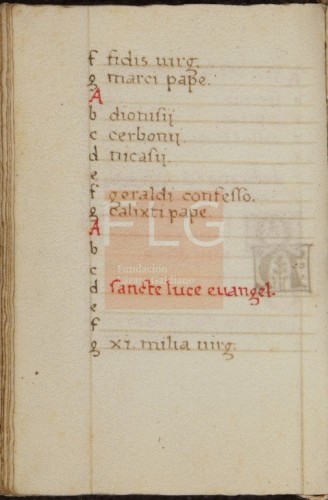 f fidis virg.
g marci pape.
A
b dionisij
c cerbonij.
d nicasij.
e
f geraldi confesso.
g calixti pape.
A
b
c
d sancte luce evangel.
e
f
g xi. milia virg.
FLG
Fundación